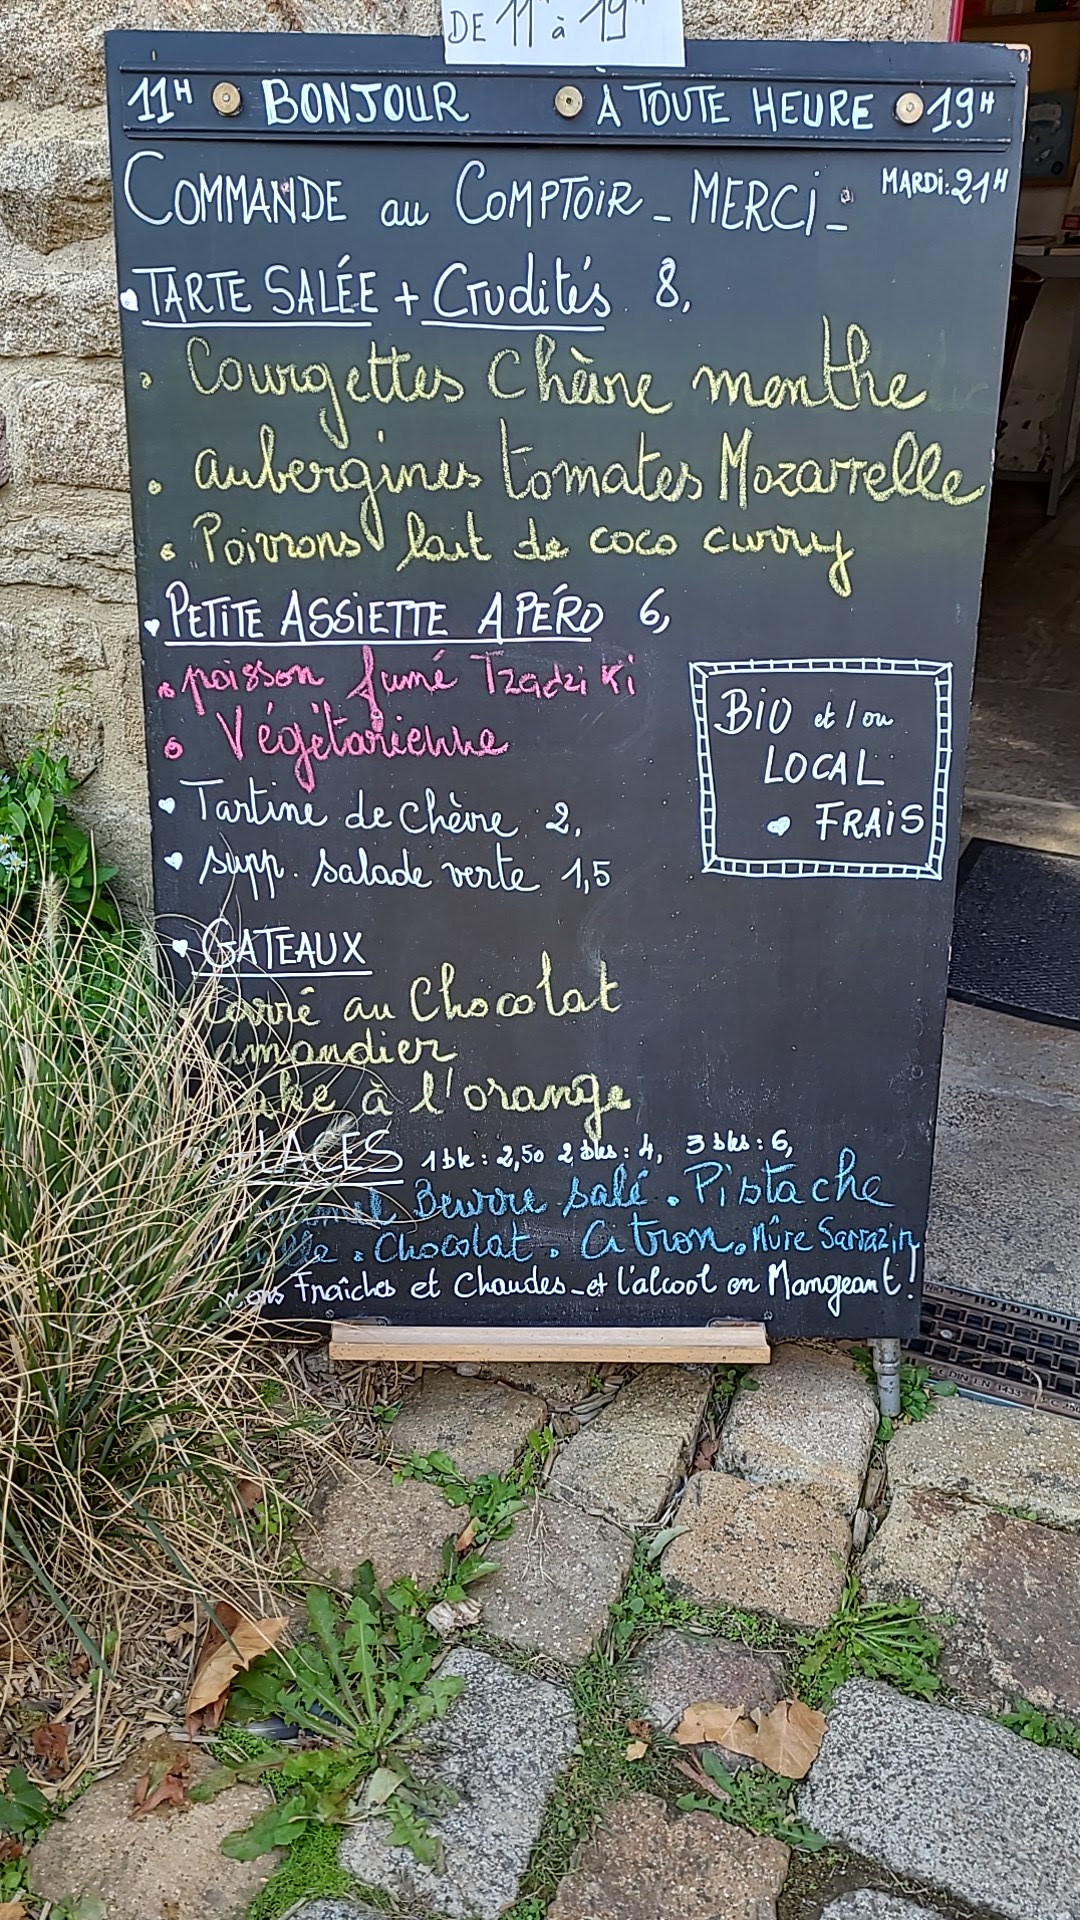 DE 11H à 19H
11H BONJOUR À TOUTE HEURE 19H
COMMANDE au COMPTOIR - MERCI - MARDI: 21H
TARTE SALÉE + Crudités 8,
Courgettes chèvre menthe
aubergines tomates Mozarrelle
Poivrons lait de coco curry
PETITE ASSIETTE APÉRO 6,
poisson fumé Tzadziki
Végétarienne
BIO et/ou
LOCAL
FRAIS
Tartine de chèvre 2,
supp. salade verte 1,5
GATEAUX
Carré au Chocolat
amandier
à l'orange
GLACES 1 ble: 2,50 2 bles: 4, 3 bles: 6,
Beurre salé. Pistache
. Chocolat. Citron. Mûre Sarrazin
Fraîches et Chaudes - et l'alcool en Mangeant!
DIN EN 1433